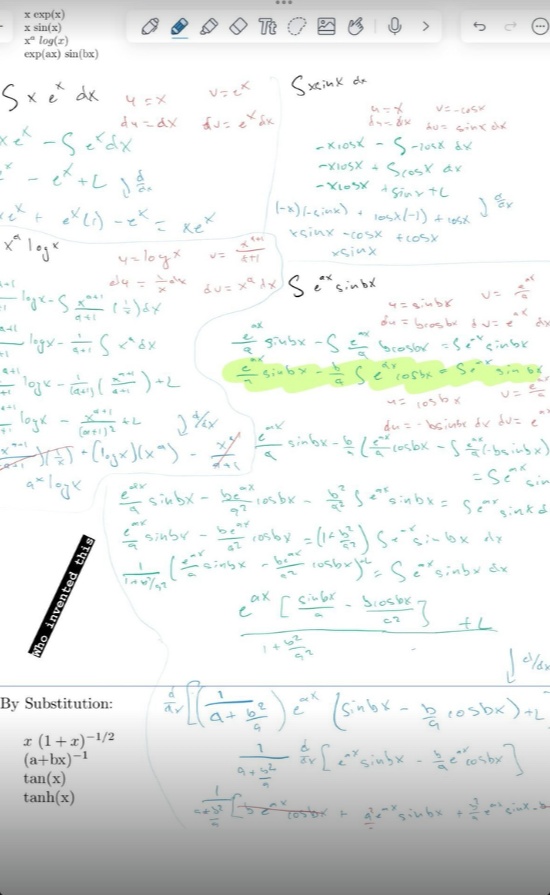 x exp(x)
x sin(x)
xᵃ log(x)
exp(ax) sin(bx)
∫ x eˣ dx
u = x v = eˣ
du = dx dv = eˣ dx
xeˣ - ∫ eˣ dx
- eˣ + C ) d/dx
xeˣ + eˣ(1) - eˣ = xeˣ
∫ x sinx dx
u = x v = -cosx
du = dx dv = sinx dx
-xcosx - ∫ -cosx dx
-xcosx + ∫ cosx dx
-xcosx + sinx + C
(-x)(-sinx) + cosx(-1) + cosx ) d/dx
xsinx - cosx + cosx
xsinx
xᵃ logx
u = logx v = xᵃ⁺¹/a+1
du = 1/x dx dv = xᵃ dx
logx - ∫ xᵃ⁺¹/a+1 (1/x) dx
logx - 1/a+1 ∫ xᵃ dx
logx - 1/(a+1) (xᵃ⁺¹/a+1) + C
logx - xᵃ⁺¹/(a+1)² + C
) d/dx
(1/x) + (logx)(xᵃ) -
aˣ logx
∫ eᵃˣ sinbx
u = sinbx v = eᵃˣ/a
du = bcosbx dv = eᵃˣ dx
eᵃˣ/a sinbx - ∫ eᵃˣ/a bcosbx = ∫ eᵃˣ sinbx
eᵃˣ/a sinbx - b/a ∫ eᵃˣ cosbx = ∫ eᵃˣ sinbx
u = cosbx v = eᵃˣ/a
du = -bsinbx dx dv = eᵃˣ
eᵃˣ/a sinbx - b/a (eᵃˣ/a cosbx - ∫ eᵃˣ/a (-bsinbx)
= ∫ eᵃˣ sin
eᵃˣ/a sinbx - beᵃˣ/a² cosbx - b²/a² ∫ eᵃˣ sinbx = ∫ eᵃˣ sinbx d
eᵃˣ/a sinbx - beᵃˣ/a² cosbx = (1+b²/a²) ∫ eᵃˣ sinbx dx
1/1+b²/a² (eᵃˣ/a sinbx - beᵃˣ/a² cosbx) + C = ∫ eᵃˣ sinbx dx
eᵃˣ [sinbx/a - bcosbx/a²] / 1 + b²/a² + C
Who invented this
↓ d/dx
By Substitution:
x (1+x)⁻¹/²
(a+bx)⁻¹
tan(x)
tanh(x)
d/dx [(1/a + b²/a) eᵃˣ (sinbx - b/a cosbx) + C
1/a+b²/a d/dx [eᵃˣ sinbx - b/a eᵃˣ cosbx]
1/a+b²/a [beᵃˣ cosbx + a²/a eᵃˣ sinbx + b²/a eᵃˣ sinx - b